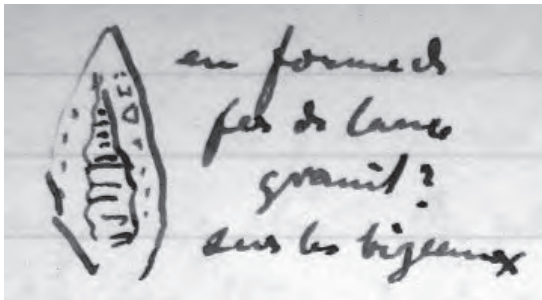 en forme de
fer de lance
granit ?
sur les bigeaux